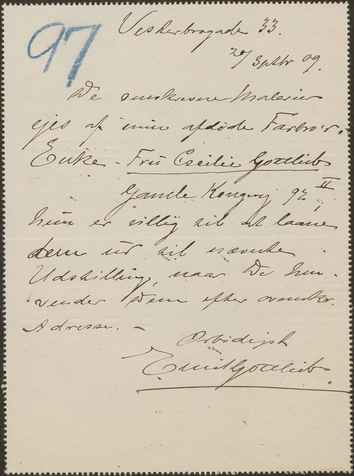 97
Vesterbrogade 33.
20/ Septbr 09.
De omskrevne Malerier
ejes af min afdøde Farbro'r.
Enke – Fru Cecilie Gottlieb
Gamle Kongevej 92 II,
hun er villig til at laane
dem ud til nævnte
Udstilling, naar De hen-
vender Dem efter ovenst.
Adresse. –
Ærbødigst
Emil Gottlieb.